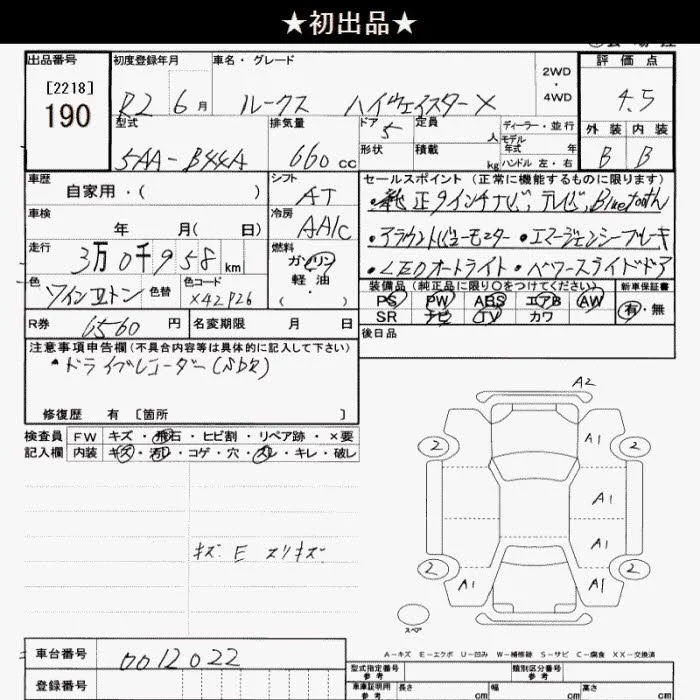 ★初出品★
出品番号 初度登録年月 車名・グレード
[2218] 2WD・4WD 評価点
190 R2 6月 ルークス ハイウェイスターX 4.5
型式 排気量 ドア 定員 人 ディーラー・並行 外装 内装
5AA-B44A 660cc 5 形状 積載 kg モデル年式 年 ハンドル 左・右 B B
車歴 シフト セールスポイント(正常に機能するものに限ります)
自家用・( ) AT ・純正9インチナビ,テレビ,Bluetooth
車検 冷房 ・アラウンドビューモニター ・エマージェンシーブレーキ
年 月( 日) AA/C ・LEDオートライト ・パワースライドドア
走行 燃料
3万0千958km ガソリン 軽油 ・ ( )
色 色替 色コード 装備品(純正品に限り○をつけてください) 新車保証書
ツイン2トン X42P26 PS PW ABS エアB AW 有・無
SR ナビ TV カワ
R券 6560円 名変期限 月 日 後日品
注意事項申告欄(不具合内容等は具体的に記入して下さい)
・ドライブレコーダー(
修復歴 有 [箇所 ]
検査員 FW キズ・飛石・ヒビ割・リペア跡・×要
記入欄 内装 キズ・汚レ・コゲ・穴・スレ・キレ・破レ
A2
2 A1 2
A1
キズ E スリキズ A1
2 A1 A1 2
スペア
A-キズ E-エクボ U-凹み W-補修跡 S-サビ C-腐食 XX-交換済
車台番号 0012022 型式指定番号 類別区分番号
参考 参考
登録番号 車庫証明用 長さ 幅 高さ
参考 cm cm cm